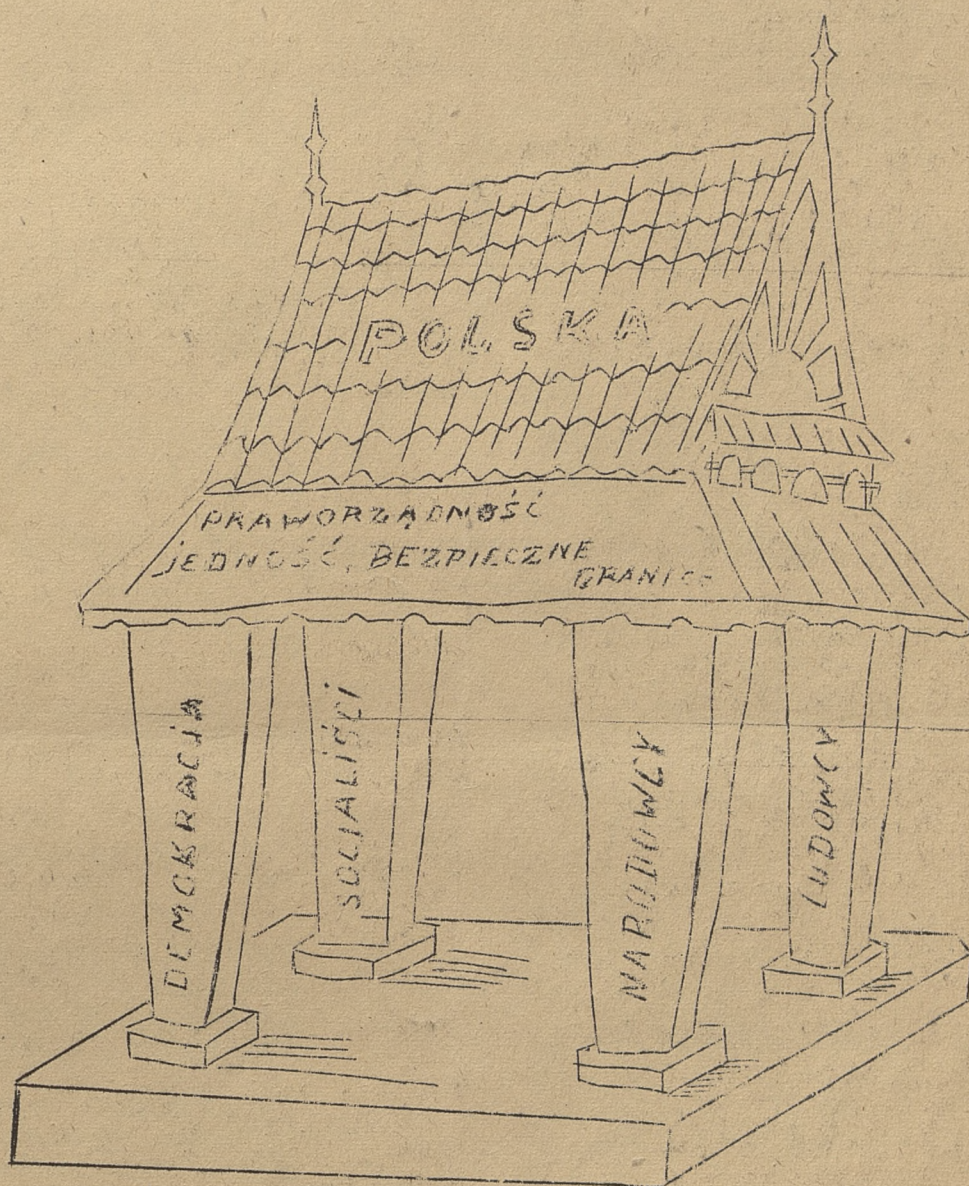 POLSKA
PRAWORZĄDNOŚĆ
JEDNOŚĆ, BEZPIECZNE
GRANICE
DEMOKRACJA
SOCJALIŚCI
NARODOWCY
LUDOWCY